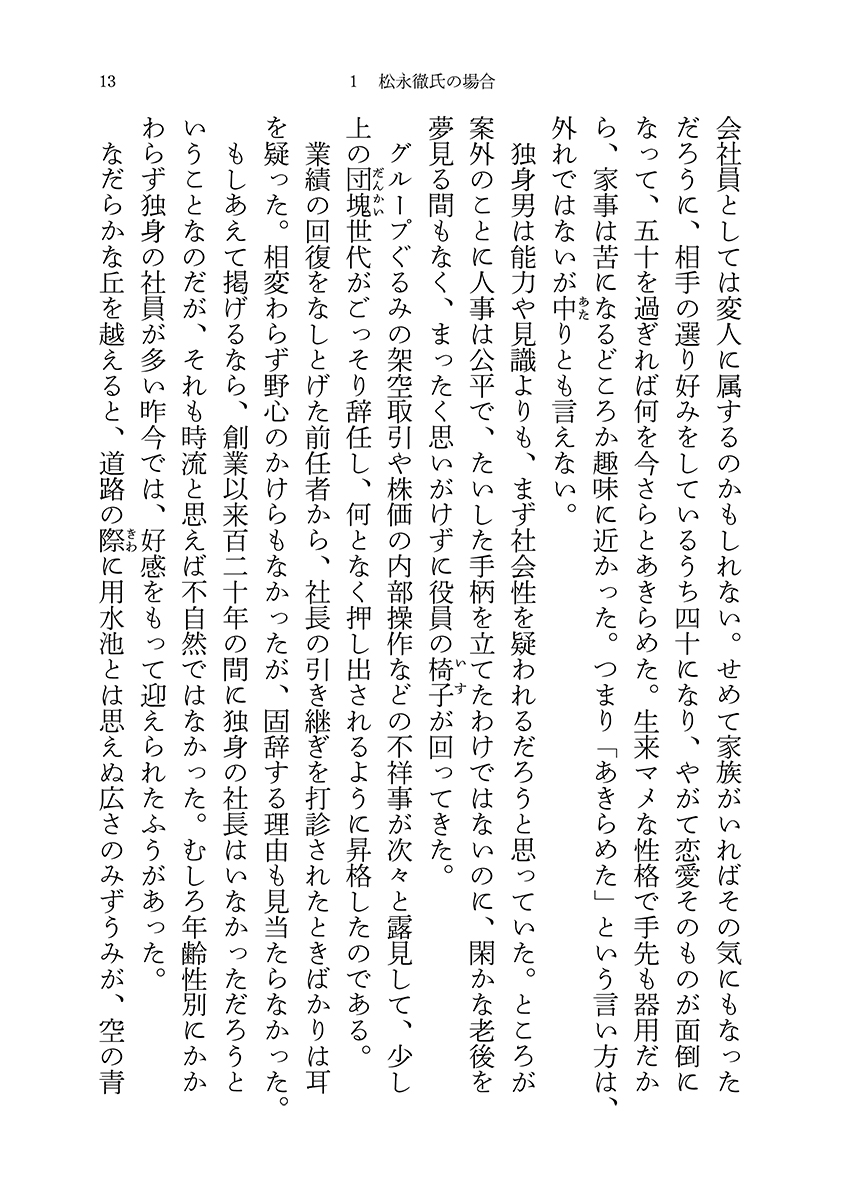 13
1 松永徹氏の場合
会社員としては変人に属するのかもしれない。せめて家族がいればその気にもなった
だろうに、相手の選り好みをしているうち四十になり、やがて恋愛そのものが面倒に
なって、五十を過ぎれば何を今さらとあきらめた。生来マメな性格で手先も器用だか
ら、家事は苦になるどころか趣味に近かった。つまり「あきらめた」という言い方は、
外れではないが中りとも言えない。
独身男は能力や見識よりも、まず社会性を疑われるだろうと思っていた。ところが
案外のことに人事は公平で、たいした手柄を立てたわけではないのに、閑かな老後を
夢見る間もなく、まったく思いがけずに役員の椅子が回ってきた。
グループぐるみの架空取引や株価の内部操作などの不祥事が次々と露見して、少し
上の団塊世代がごっそり辞任し、何となく押し出されるように昇格したのである。
業績の回復をなしとげた前任者から、社長の引き継ぎを打診されたときばかりは耳
を疑った。相変わらず野心のかけらもなかったが、固辞する理由も見当たらなかった。
もしあえて掲げるなら、創業以来百二十年の間に独身の社長はいなかっただろうと
いうことなのだが、それも時流と思えば不自然ではなかった。むしろ年齢性別にかか
わらず独身の社員が多い昨今では、好感をもって迎えられたふうがあった。
なだらかな丘を越えると、道路の際に用水池とは思えぬ広さのみずうみが、空の青